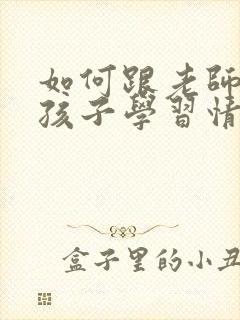 如何跟老師
孩子學習情
盒子里的小丑